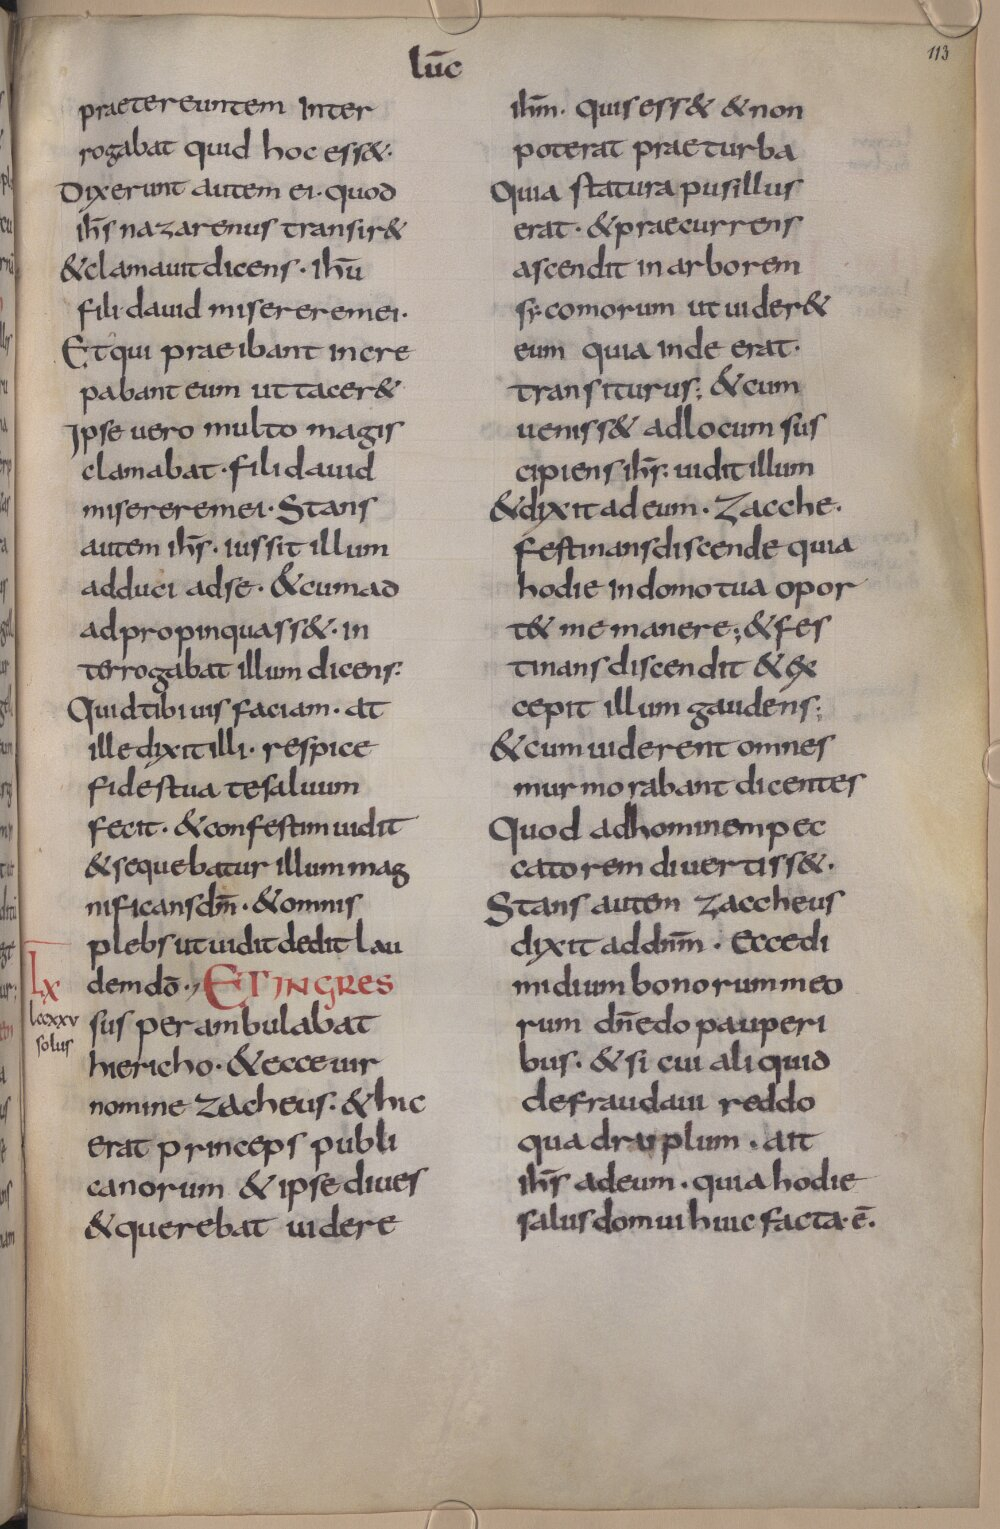 lūc
113
praetereuntem Inter
rogabat quid hoc ess&·
Dixerunt autem ei· quod
ih̄s nazarenus transir&
&clamauit dicens· ihū
fili dauid misereremei·
Et qui praeibant incre
pabant eum ut tacer&
Ipse uero multo magis
clamabat· fili dauid
misereremei· Stans
autem ih̄s· iussit illum
adduci adse· &cumad
adpropinquass&· in
terrogabat illum dicens:
Quid tibi uis faciam· at
ille dixit illi· respice
fides tua te saluum
fecit· &confestim uidit
&sequebatur illum mag
nificans dm̄· &omnis
plebs ut uidit dedit lau
dem dō·, ET INGRES
Lx
lccxxv
solus
sus perambulabat
hiericho· &ecce uir
nomine zacheus· &hic
erat princeps publi
canorum &ipse diues
&querebat uidere
ihm̄· quis ess& &non
poterat prae turba
Quia statura pusillus
erat· &praecurrens
ascendit in arborem
sycomorum ut uider&
eum quia inde erat·
transiturus; &cum
ueniss& adlocum sus
cipiens ih̄s: uidit illum
&dixit ad eum· Zacche·
festinans discende quia
hodie in domo tua opor
t& me manere; &fes
tinans discendit &ex
cepit illum gaudens;
&cum uiderent omnes
murmorabant dicentes
Quod adhominem pec
catorem diuertiss&·
Stans autem zaccheus
dixit addnm̄· Ecce di
midium bonorum meo
rum dn̄e do pauperi
bus· &si cui aliquid
defraudaui reddo
quadruplum· ait
ih̄s adeum· quia hodie
salus domui huic facta·ē·